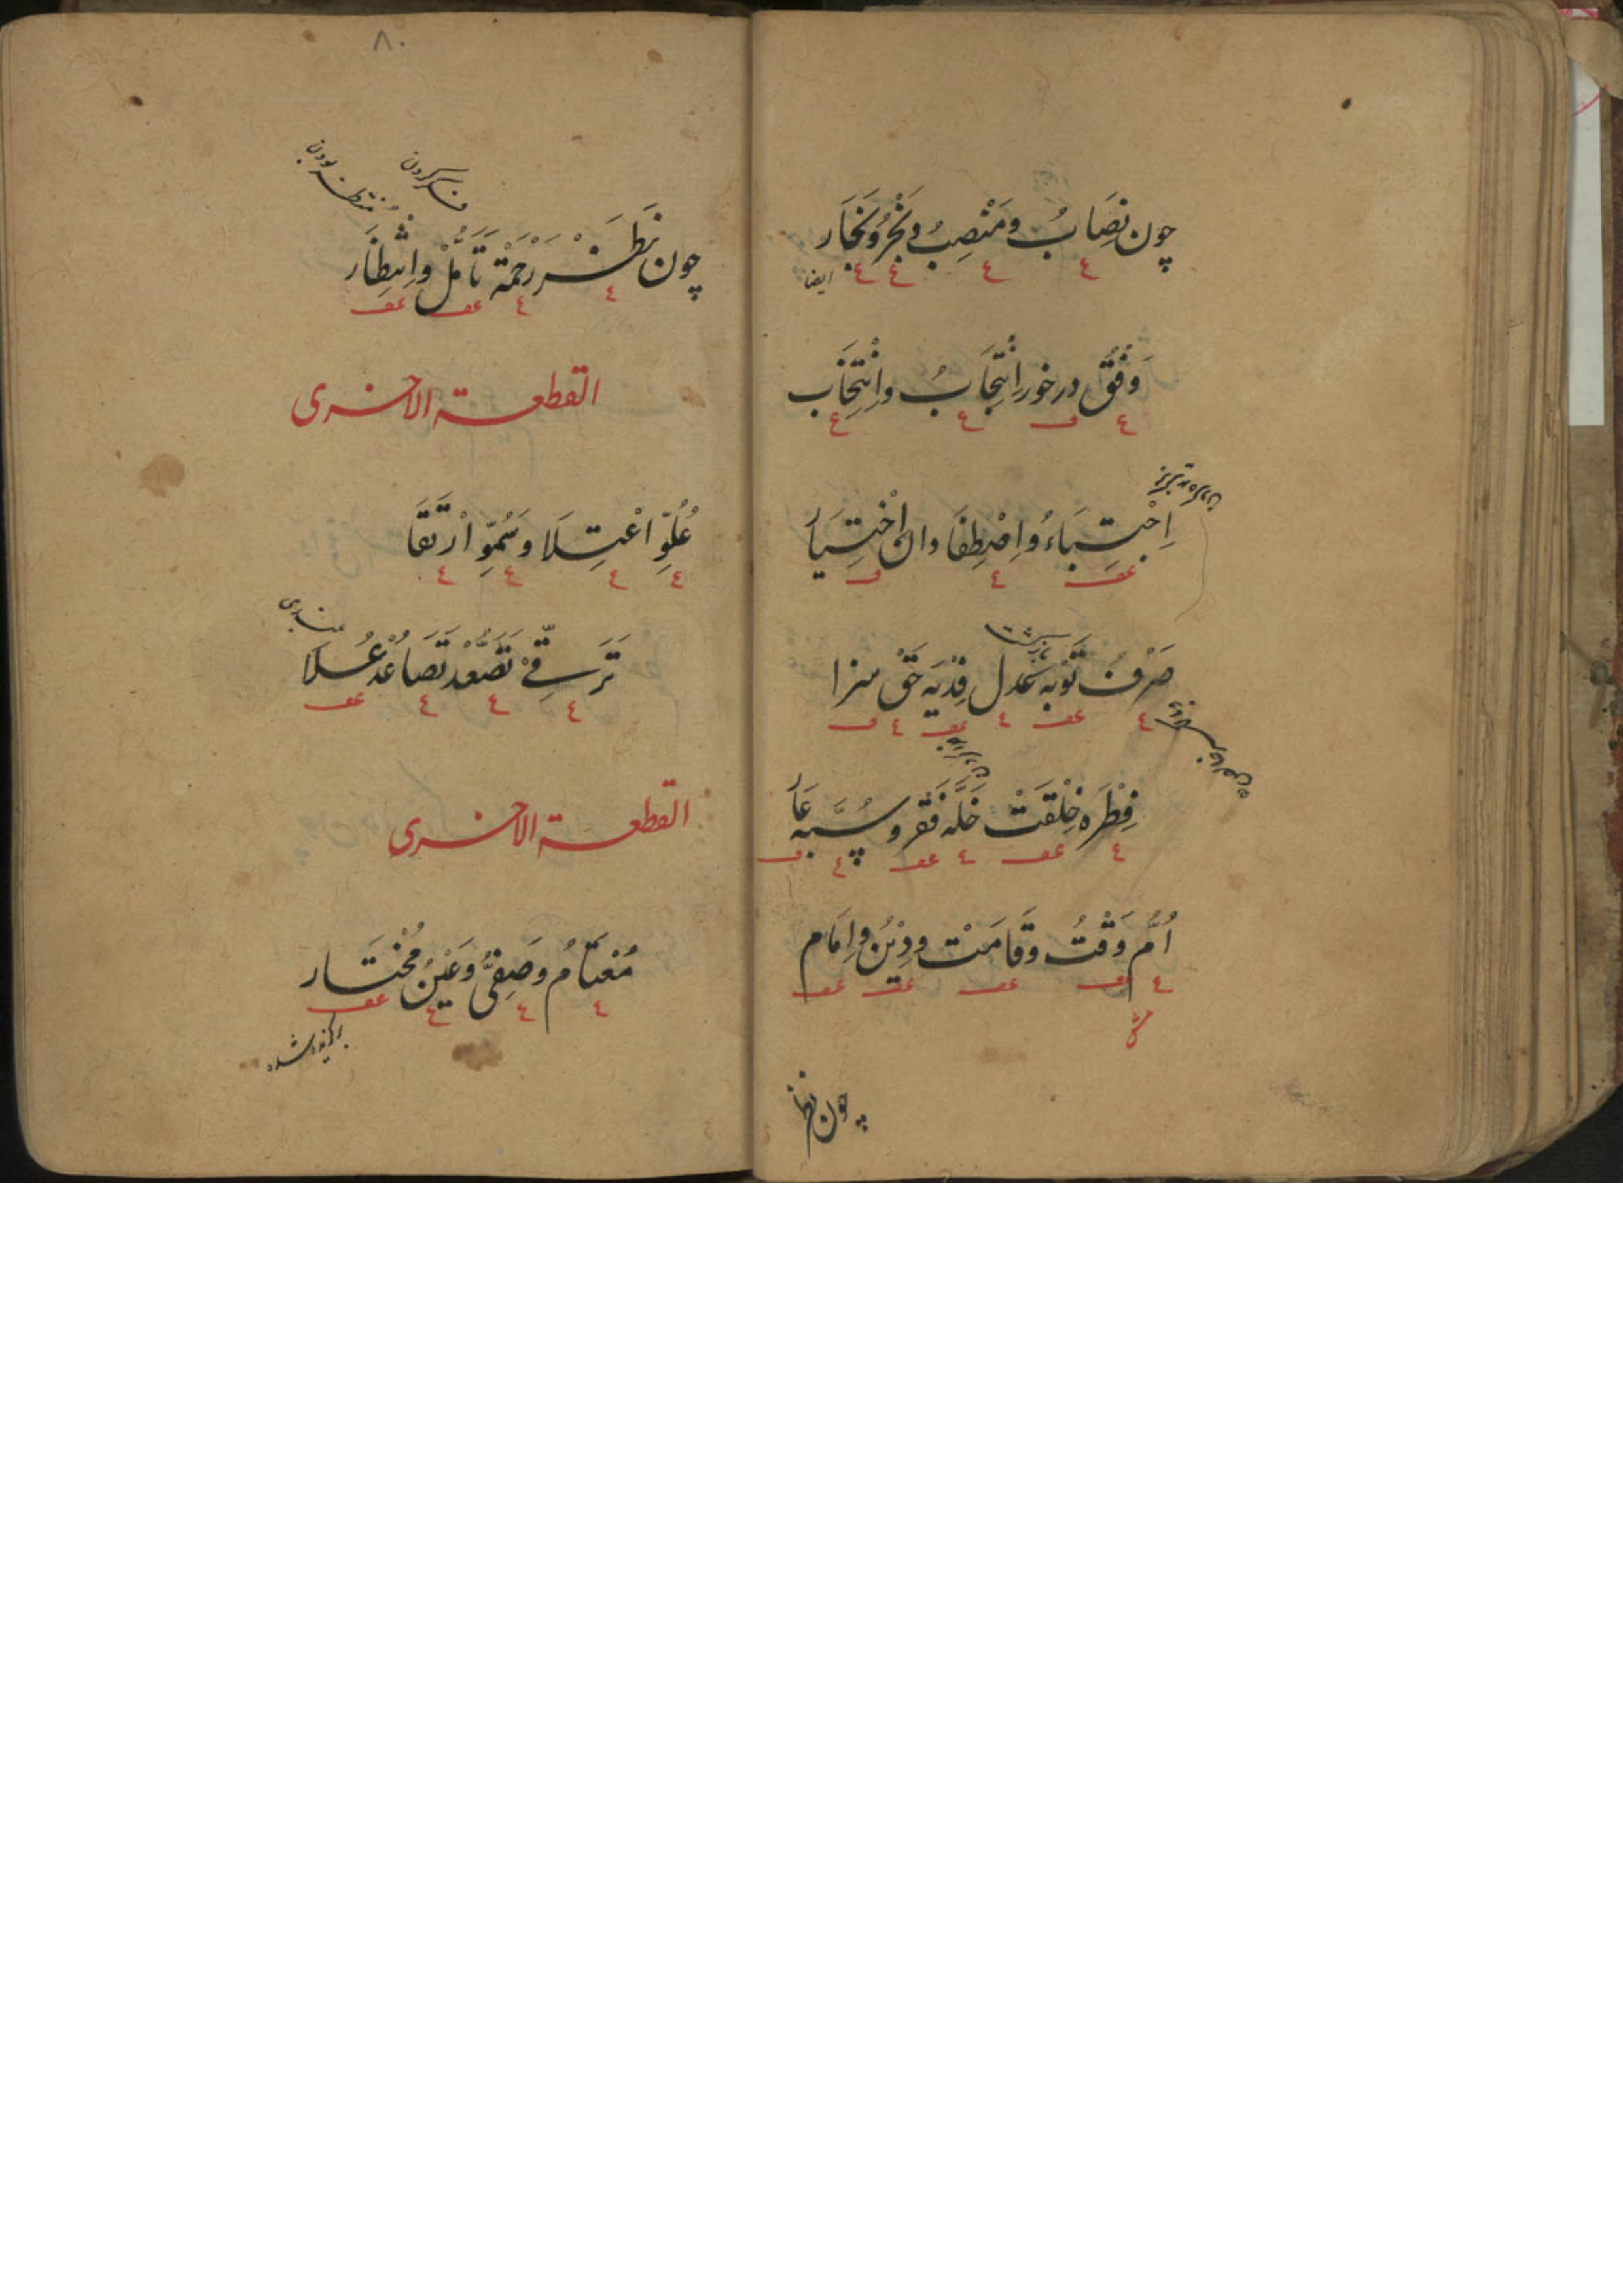 چون نِصَابُ و مَنْصِبُ و نَجْرُ و نِجَار
ايضا
وَفْقْ درخور اِنْتِجَابُ و اِنْتِخَاب
اِجْتِبَاءُ و اِصْطِفَا دان اِخْتِيَار
صَرْفُ تَوْبَه عَدل فِدْيَه حَقّ سزا
فِطْرَه خِلْقَتْ خَلَّه فَقر و سُبَّه عَار
اُمّ وَقْتُ و قَامَتْ و دِيْنُ و اِمَام
چون نظر
٨٠
فكر كردن
منتظر بودن
چون نَظَرْ رَحْمَةْ تَأَمُّلْ و اِنْتِظَار
القطعة الاخرى
عُلُوّ اعْتِلَا و سُمُوّ ارْتِقَا
تَرَقِّيْ تَصَعُّدْ تَصَاعُدْ عُلَا
بلندى
القطعة الاخرى
مُعْتَامُ و صَفِىُّ و عَيْنُ مُخْتَار
برگزيده شده